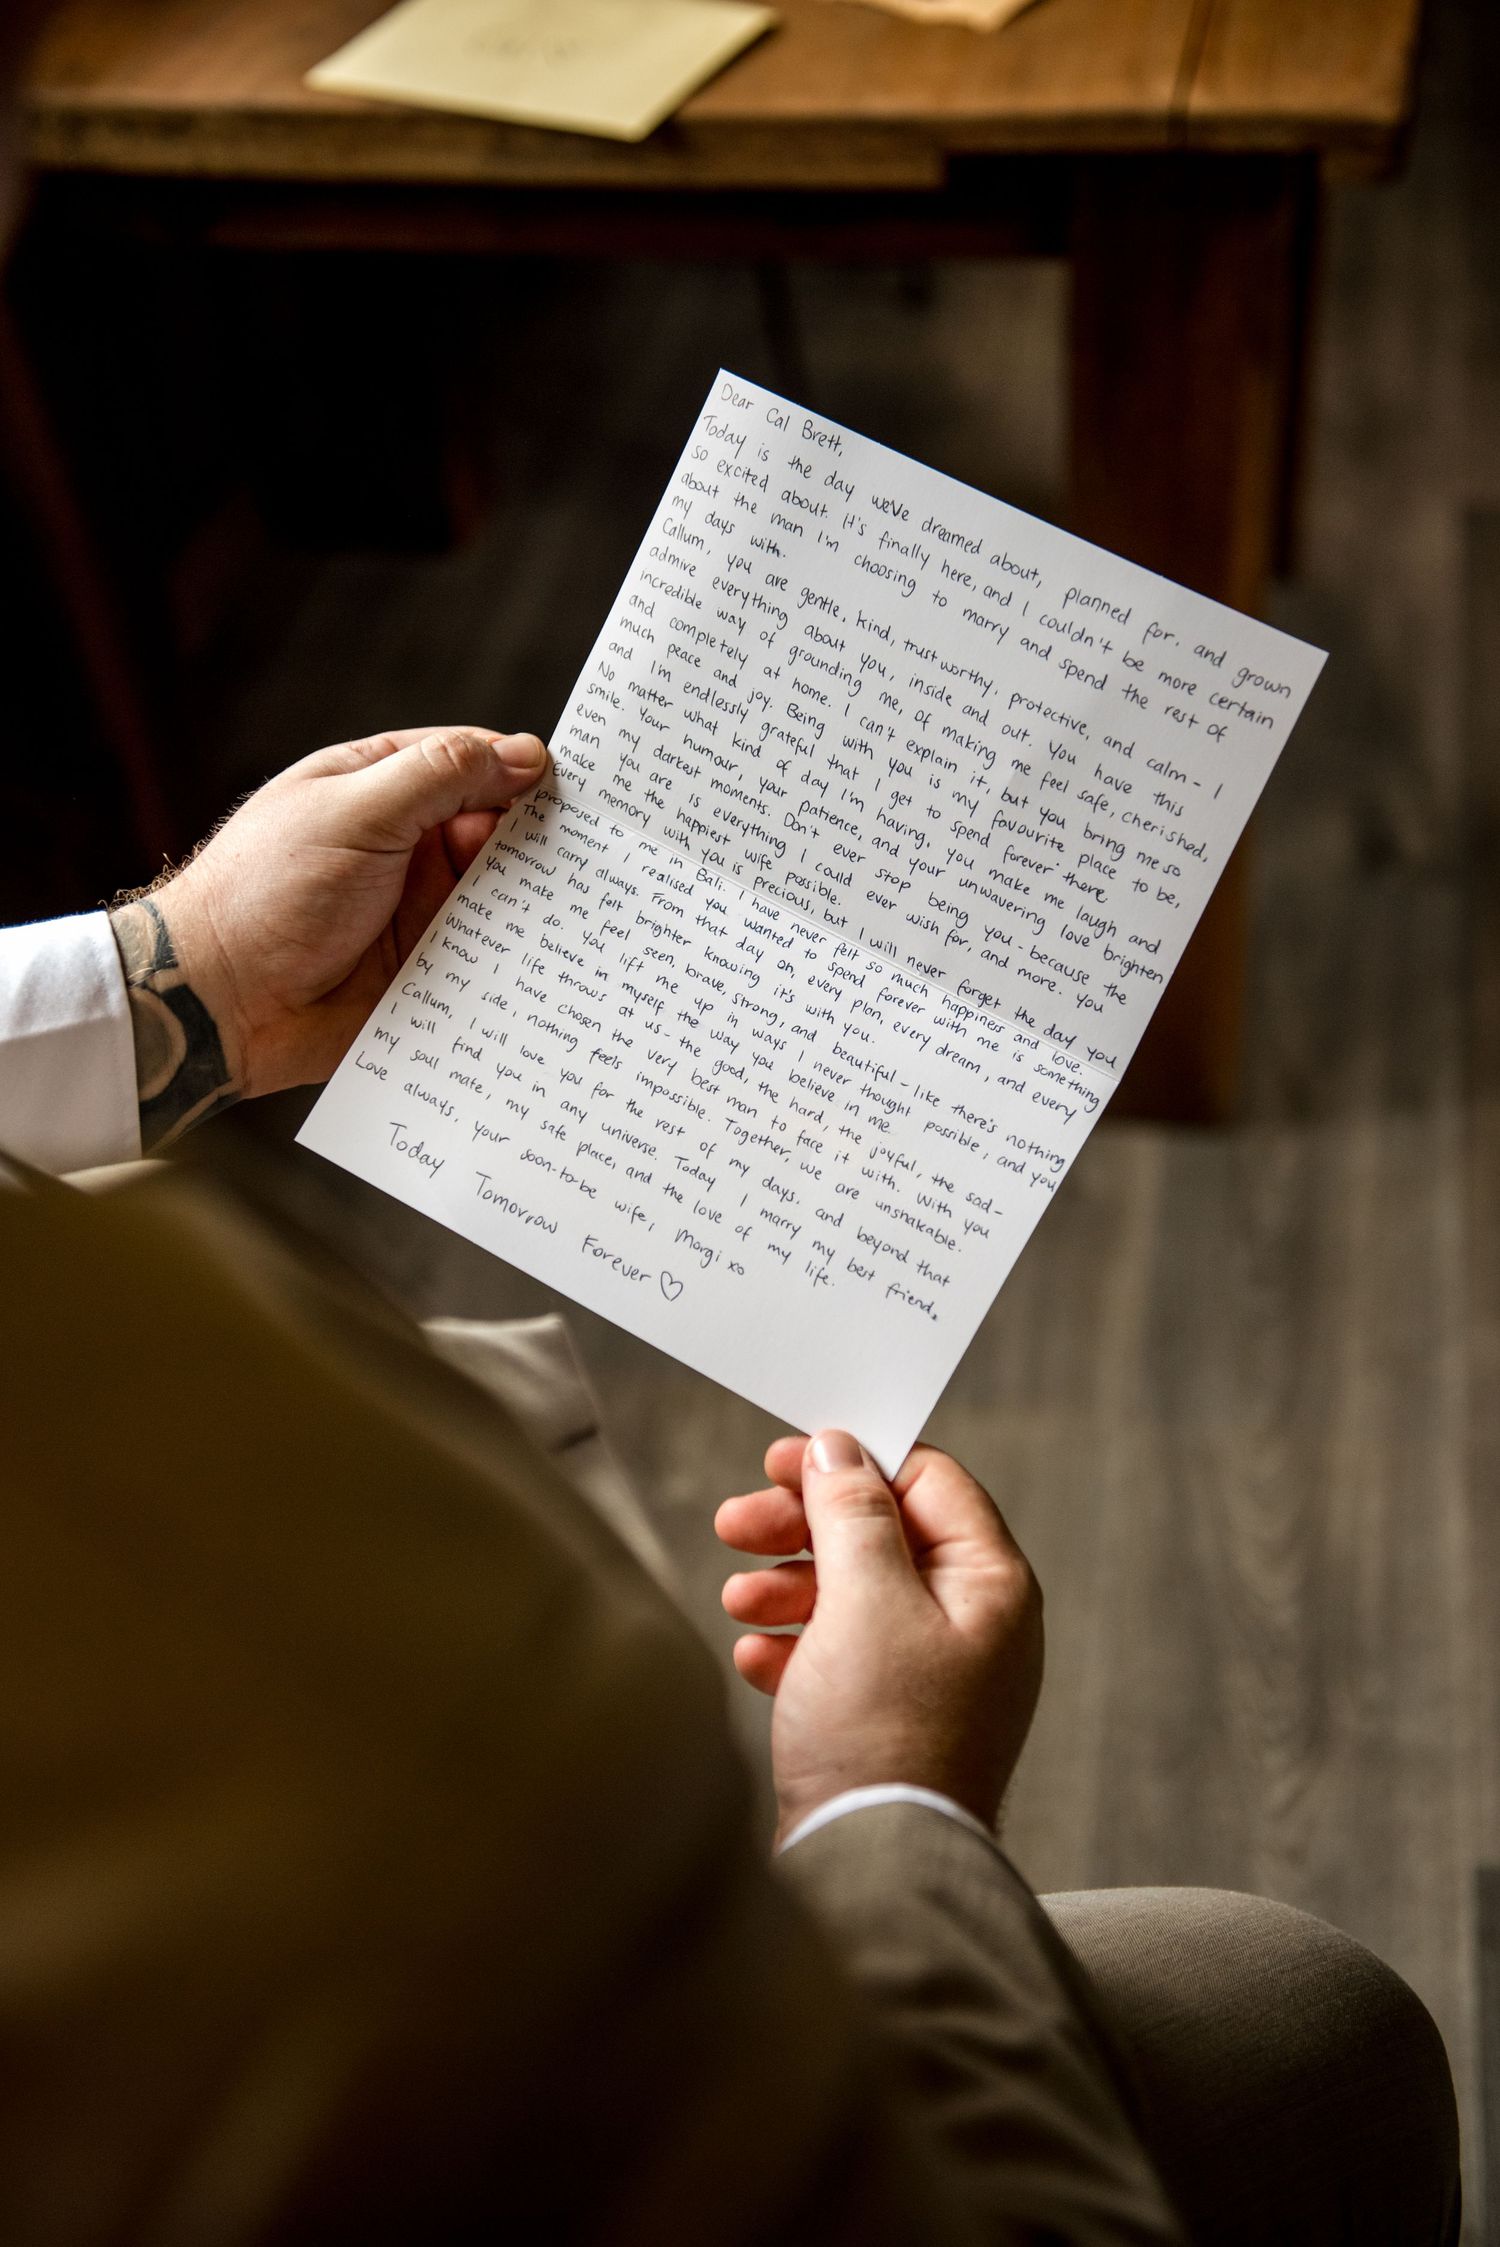 Dear Cal Brett,
Today is the day we've dreamed about, planned for, and grown
so excited about. It's finally here, and I couldn't be more certain
about the man I'm choosing to marry and spend the rest of
my days with.
Callum, you are gentle, kind, trustworthy, protective, and calm - I
admire everything about you, inside and out. You have this
incredible way of grounding me, of making me feel safe, cherished,
and completely at home. I can't explain it, but you bring me so
much peace and joy. Being with you is my favourite place to be,
and I'm endlessly grateful that I get to spend forever there.
No matter what kind of day I'm having, you make me laugh and
smile. Your humour, your patience, and your unwavering love brighten
even my darkest moments. Don't ever stop being you - because the
man you are is everything I could ever wish for, and more. You
make me the happiest wife possible.
Every memory with you is precious, but I will never forget the day you
proposed to me in Bali. I have never felt so much happiness and love.
The moment I realised you wanted to spend forever with me is something
I will carry always. From that day on, every plan, every dream, and every
tomorrow has felt brighter knowing it's with you.
You make me feel seen, brave, strong, and beautiful - like there's nothing
I can't do. You lift me up in ways I never thought possible, and you
make me believe in myself the way you believe in me.
Whatever life throws at us - the good, the hard, the joyful, the sad-
I know I have chosen the very best man to face it with. With you
by my side, nothing feels impossible. Together, we are unshakable.
Callum, I will love you for the rest of my days, and beyond that
I will find you in any universe. Today I marry my best friend,
my soul mate, my safe place, and the love of my life.
Love always, your soon-to-be wife, Morgi xo
Today Tomorrow Forever ♡